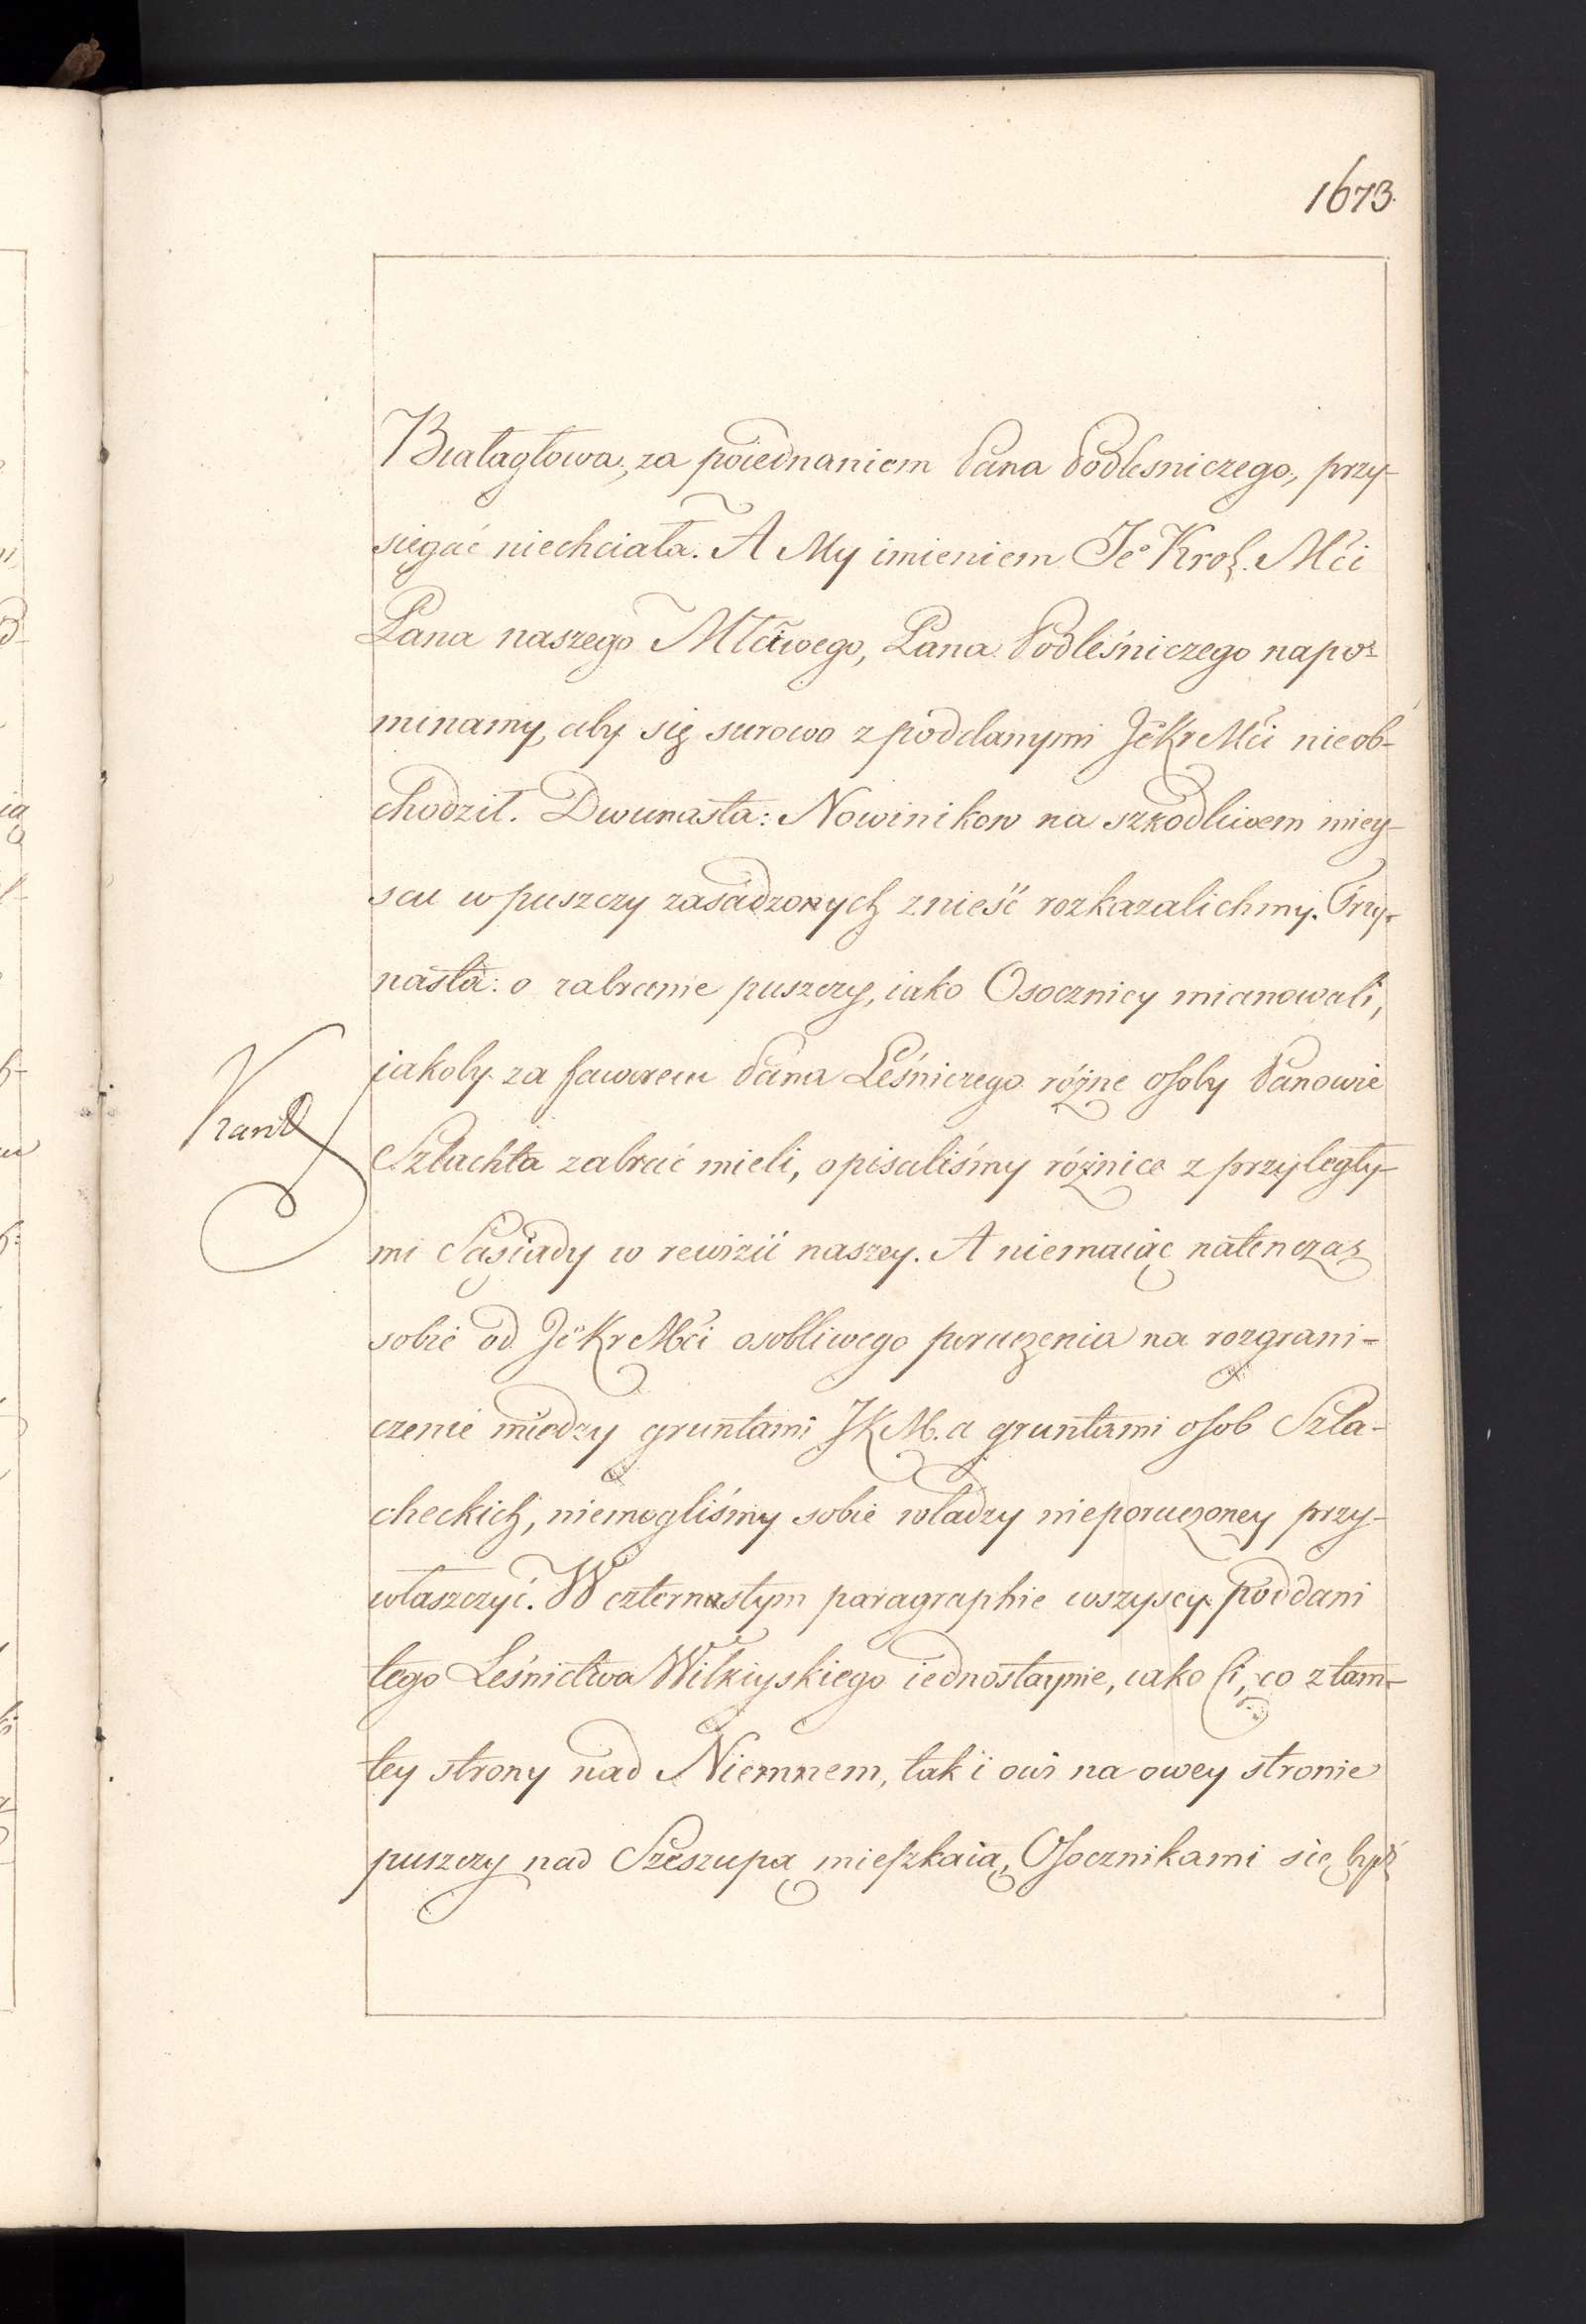 1673.
Białagłowa, za poiednaniem Pana Podlesniczego, przy-
siegać niechciała. A My imieniem Je° Krol. Mći
Pana naszego Młćiwego, Pana Podleśniczego napo-
minamy, aby się surowo z poddanymi JeKrMći nieob-
chodził. Dwunasta: Nowinikow na szkodliwem miey-
scu w puszczy zasadzonych znieść rozkazalichmy. Trzy-
nasta: o zabranie puszczy, iako Osocznicy mianowali,
iakoby za faworem Pana Leśniczego różne osoby Panowie
Szlachta zabrać mieli, opisaliśmy różnice z przyległy-
mi Sąsiady w rewizii naszey. A niemaiąc natenczas
sobie od JeKrMći osobliwego poruczenia na rozgrani-
czenie miedzy gruntami JKM. a gruntami osob Szla-
checkich, niemogliśmy sobie władzy nieporuczoney przy-
właszczyć. W czternastym paragraphie wszyscy poddani
tego Leśnictwa Wilkiyskiego iednostaynie, iako Ci, co z tam-
tey strony nad Niemnem, tak i owi na owey stronie
puszczy nad Szeszupą mieszkaią, Osocznikami się być